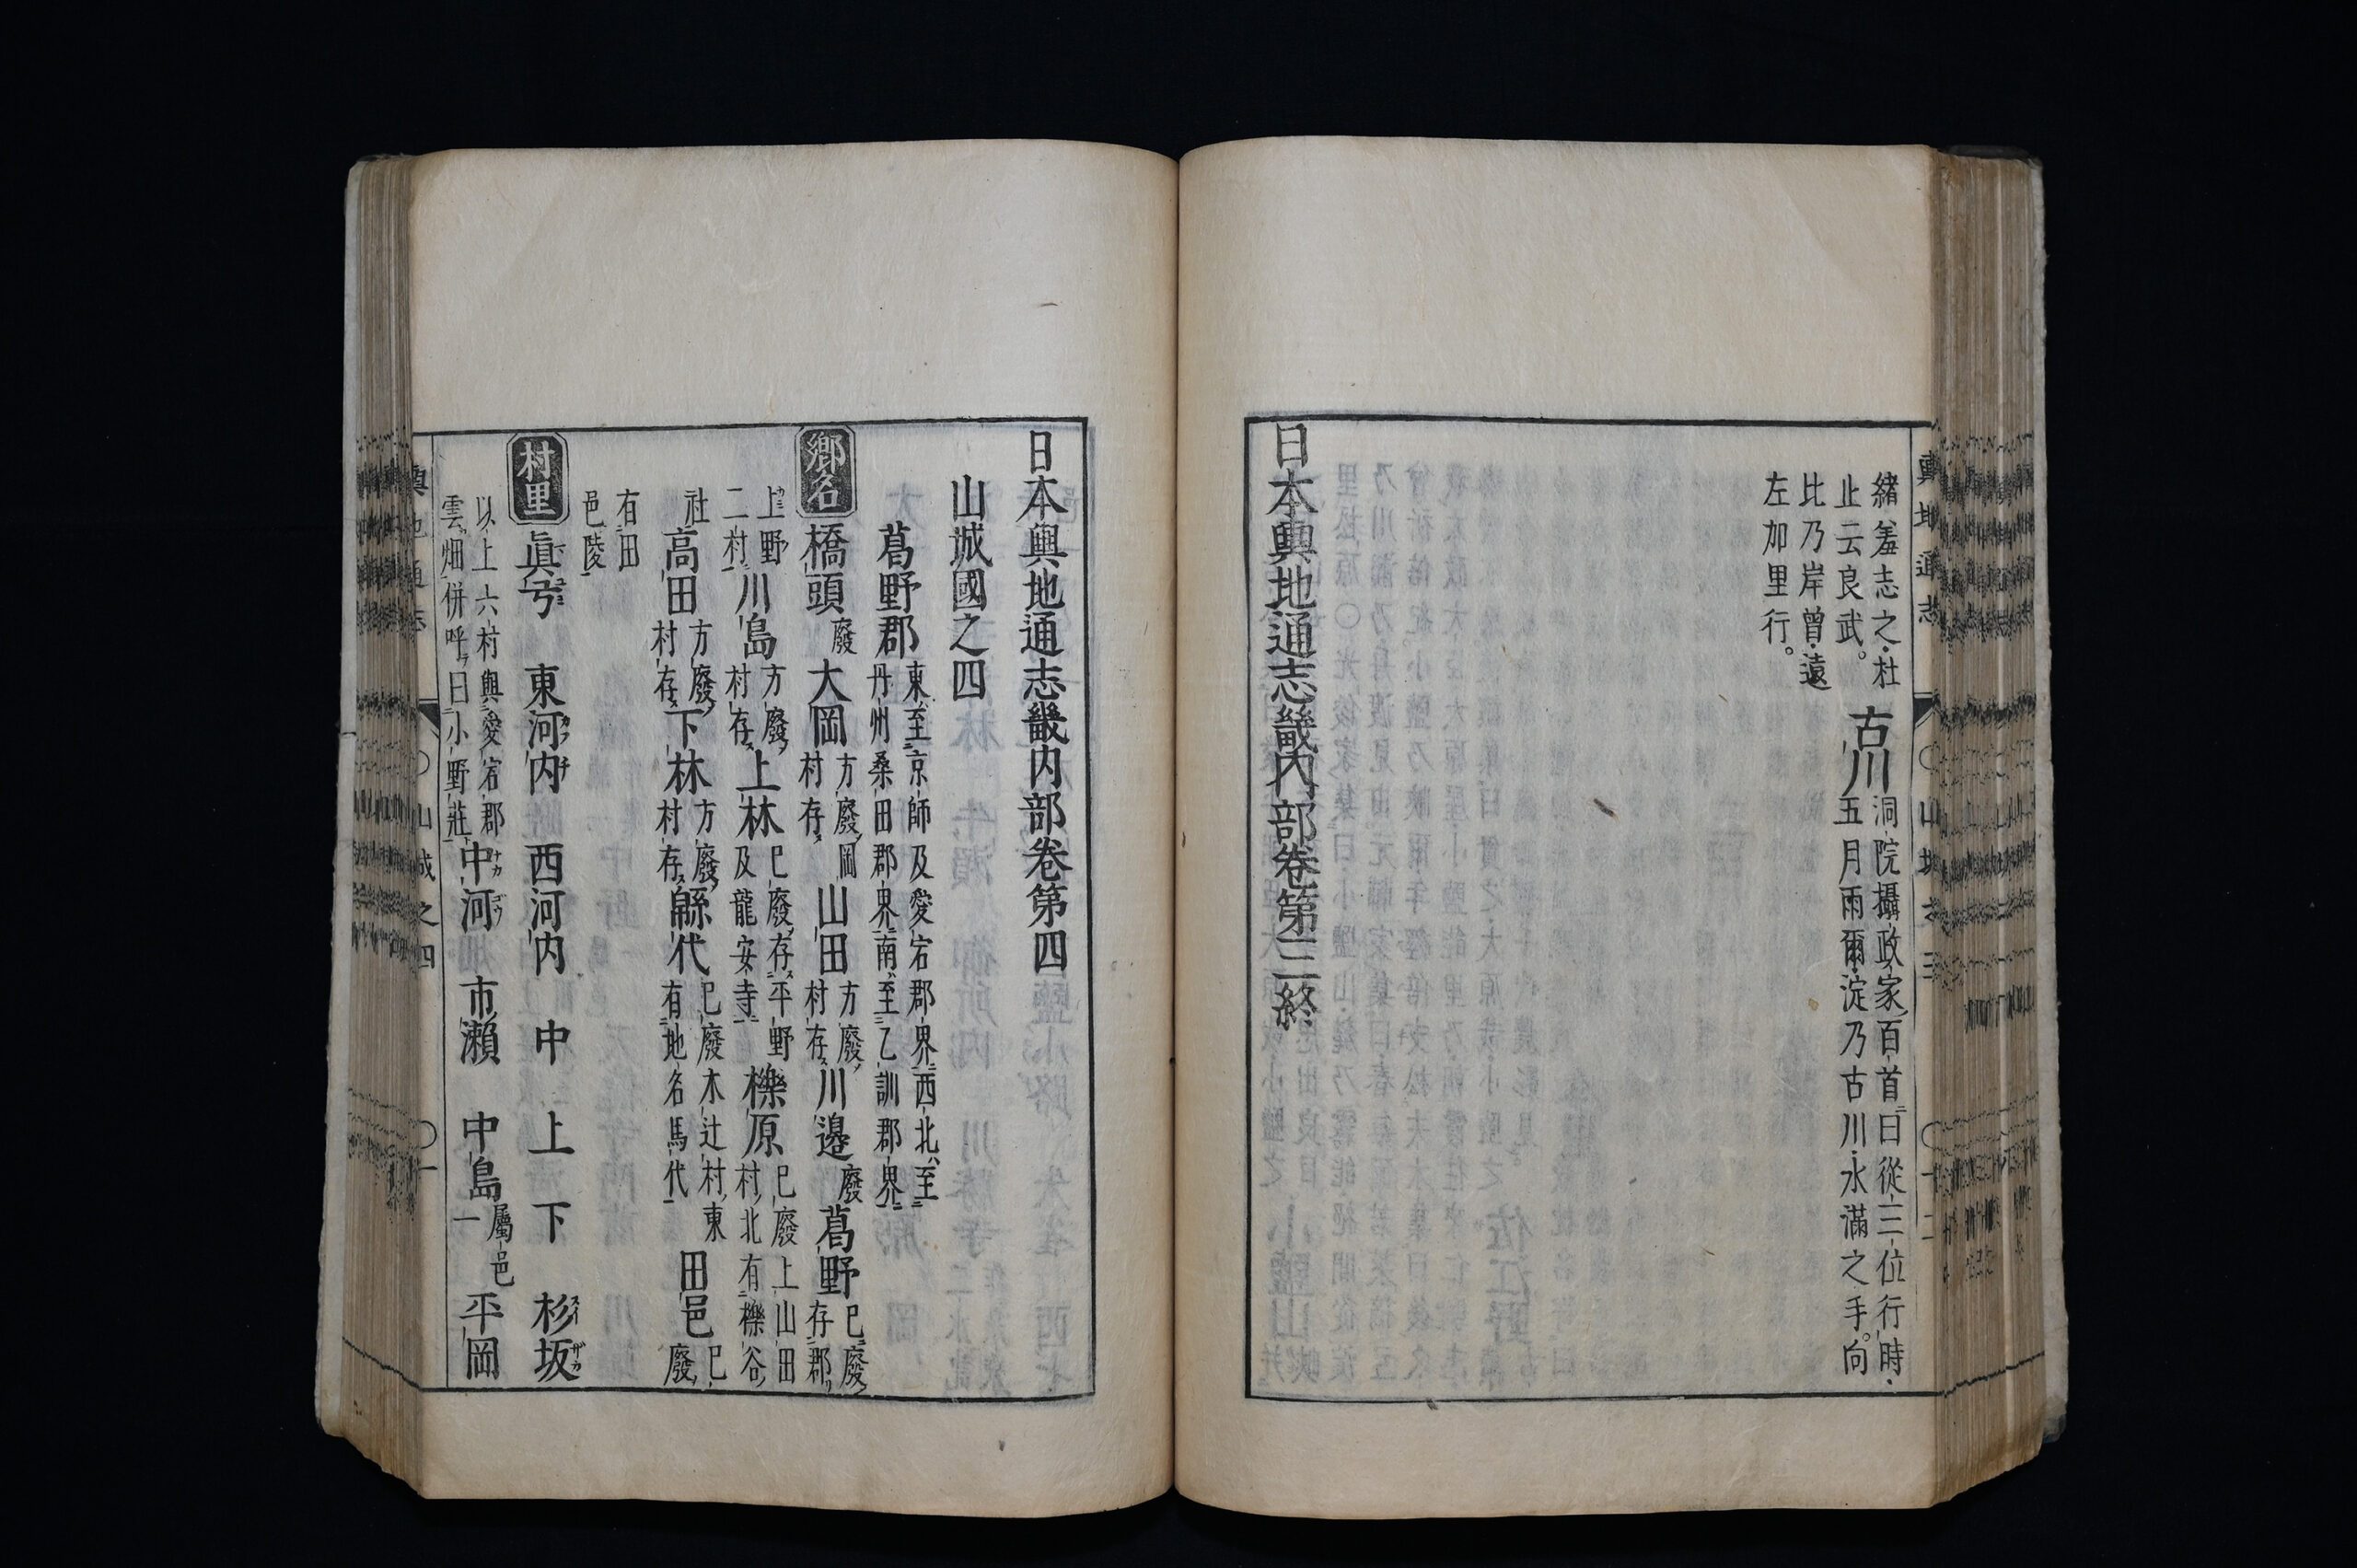 緒羞志之杜
止云良武。
古川
洞院攝政家百首曰從三位行時
五月雨爾淀乃古川水滿之手。向
比乃岸曾遠
左加里行。
日本輿地通志畿內部卷第三終
日本輿地通志畿内部卷第四
山城國之四
葛野郡
東至京師及愛宕郡界西北至
丹州桑田郡界南至乙訓郡界
鄉名
橋頭
廢
大岡
方廢岡
村存
山田
方廢
村存
川邊
廢
葛野
已廢
存郡
上野
二村
川島
方廢
村存
上林
已廢存平野
及龍安寺
櫟原
已廢上山田
村北有櫟谷
社
高田
方廢
村存
下林
方廢
村存
緜代
已廢木辻村東
有地名馬代
田邑
已
廢
有田
邑陵
村里
眞弓
東河内
西河内
中
上
下
杉坂
以上六村與愛宕郡
雲畑併呼曰小野莊
中河
市瀨
中島
屬邑
一
平岡